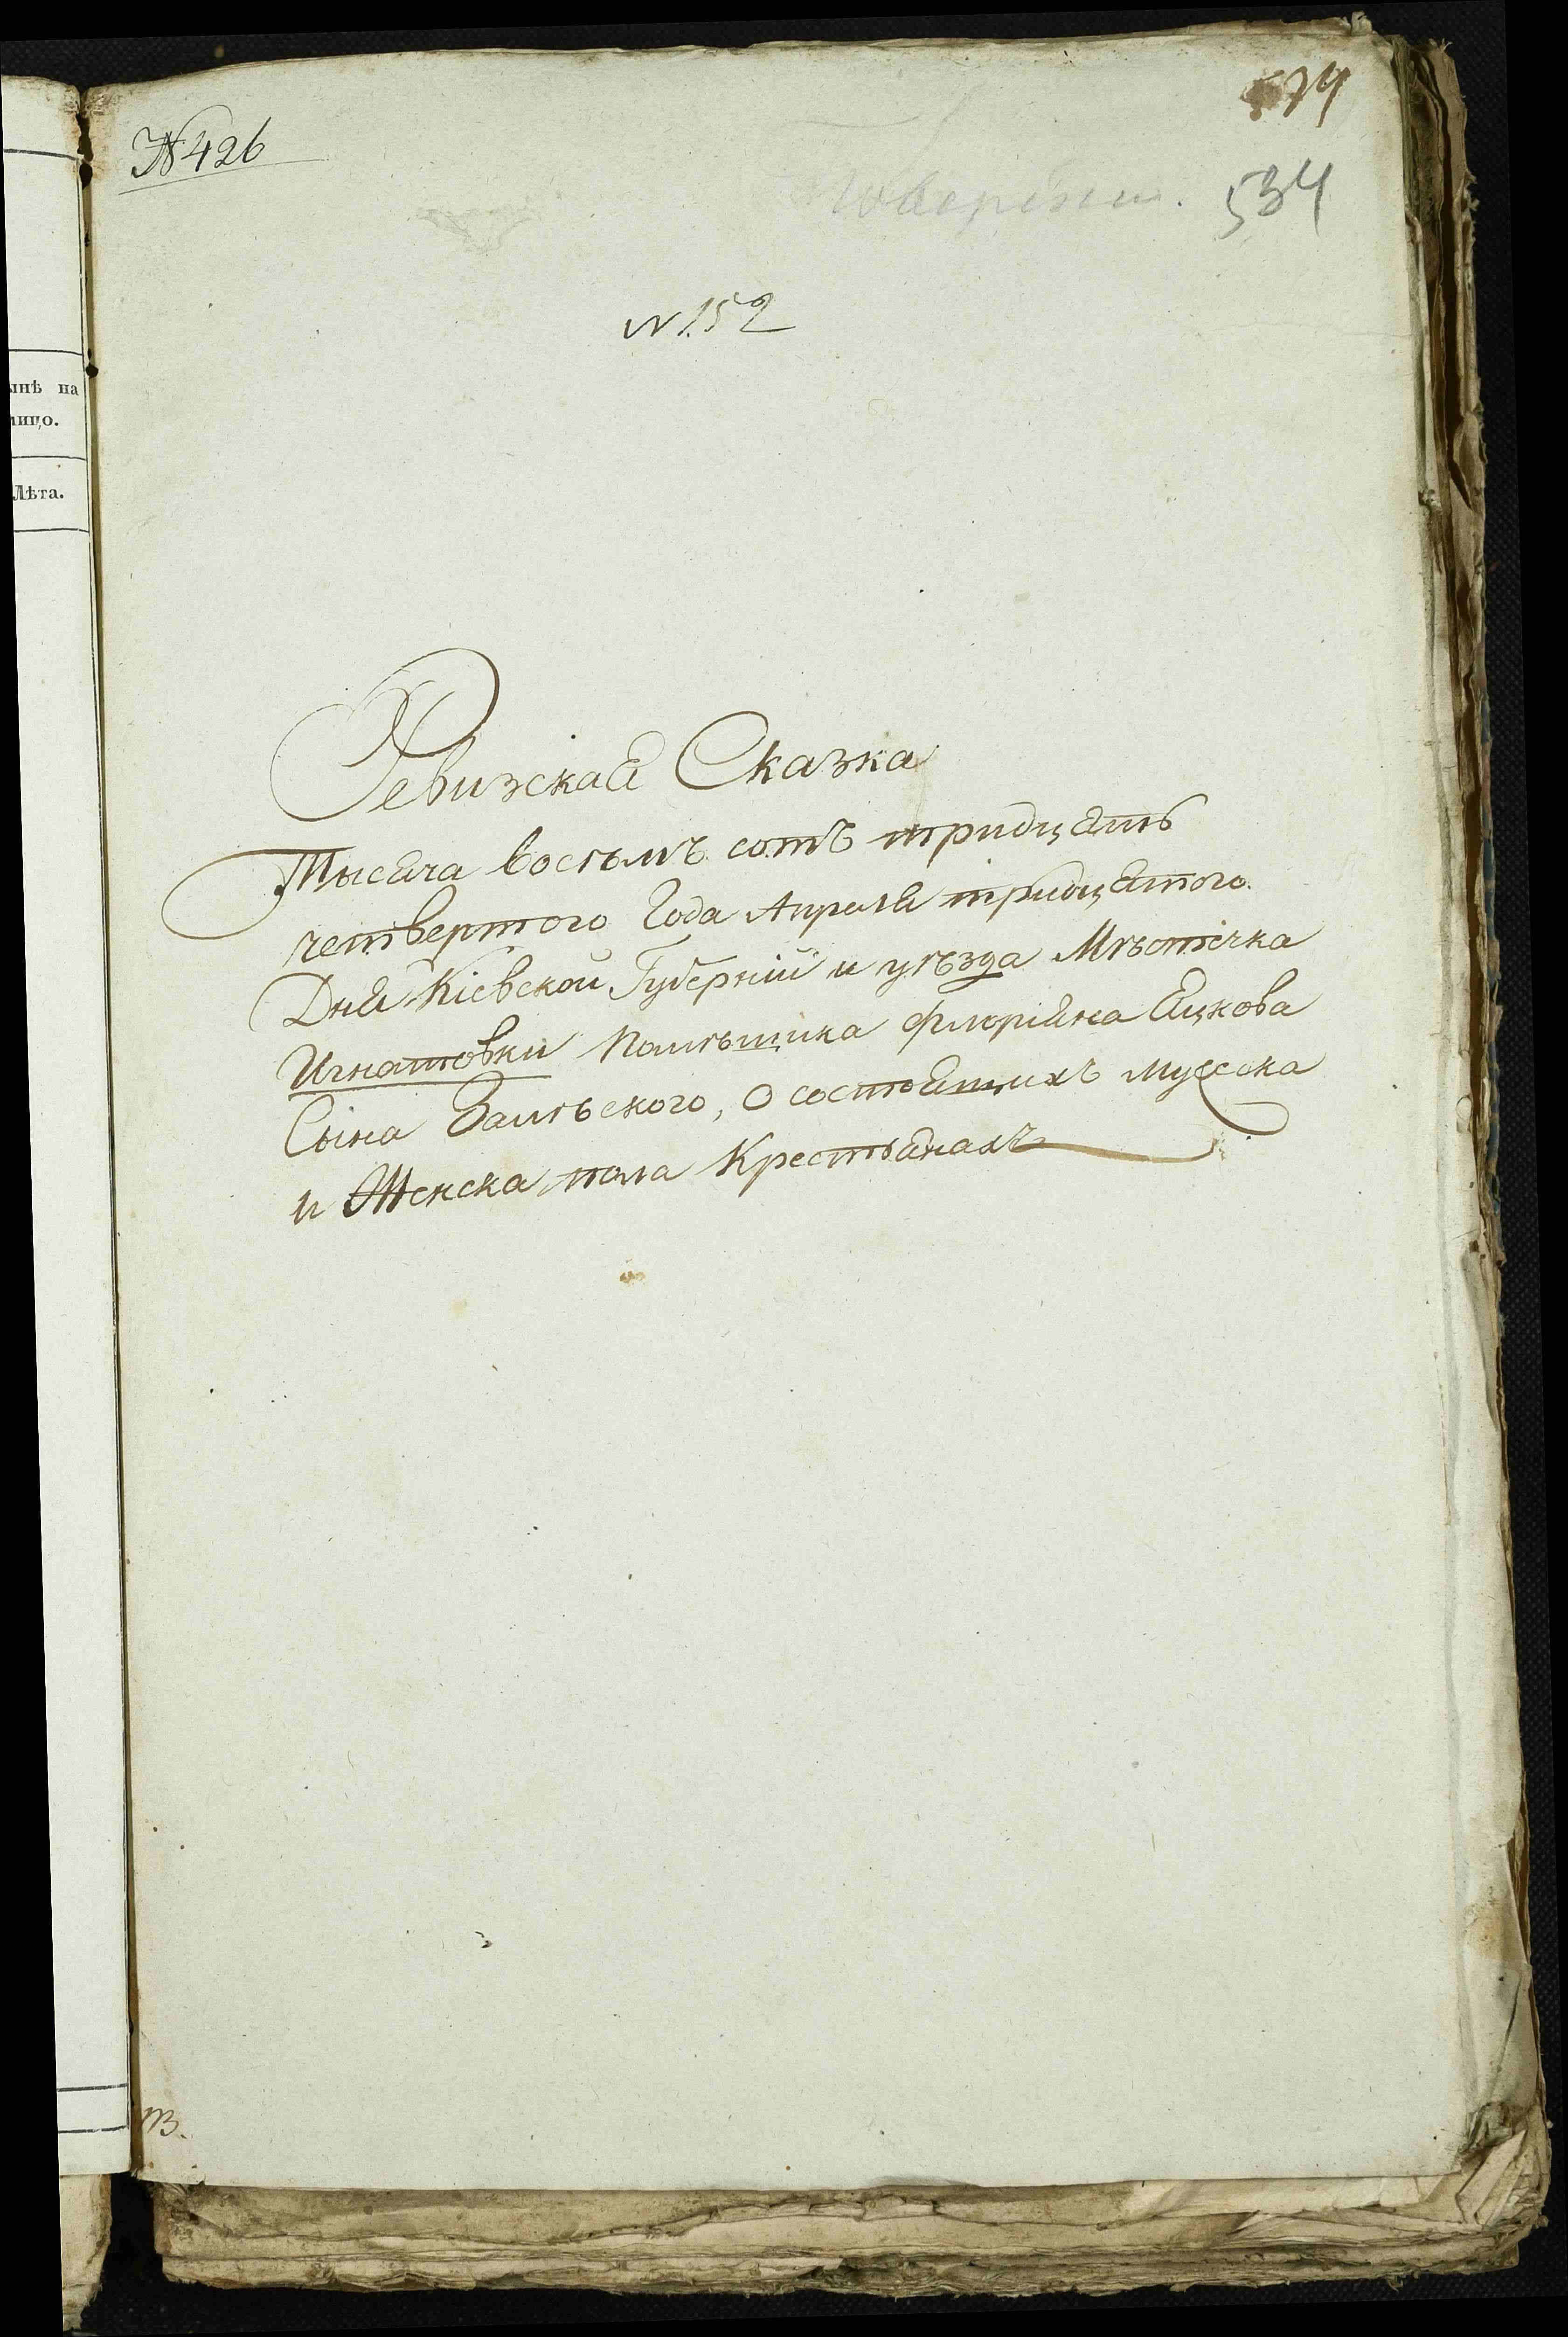 574
№ 426
534
№ 152
ынѣ на
лицо.
Лѣта.
Ревизская Сказка
Тысяча восѣмъ сотъ тридцать
четвертого Года Апреля тридцятого
Дня Кіевской Губерніи и уѣзда Мѣстечка
Игнатовки Помѣщика Флоріяна Яцкова
Сына Залѣского, о состоящихъ мужеска
и Женска пола Крестьянахъ